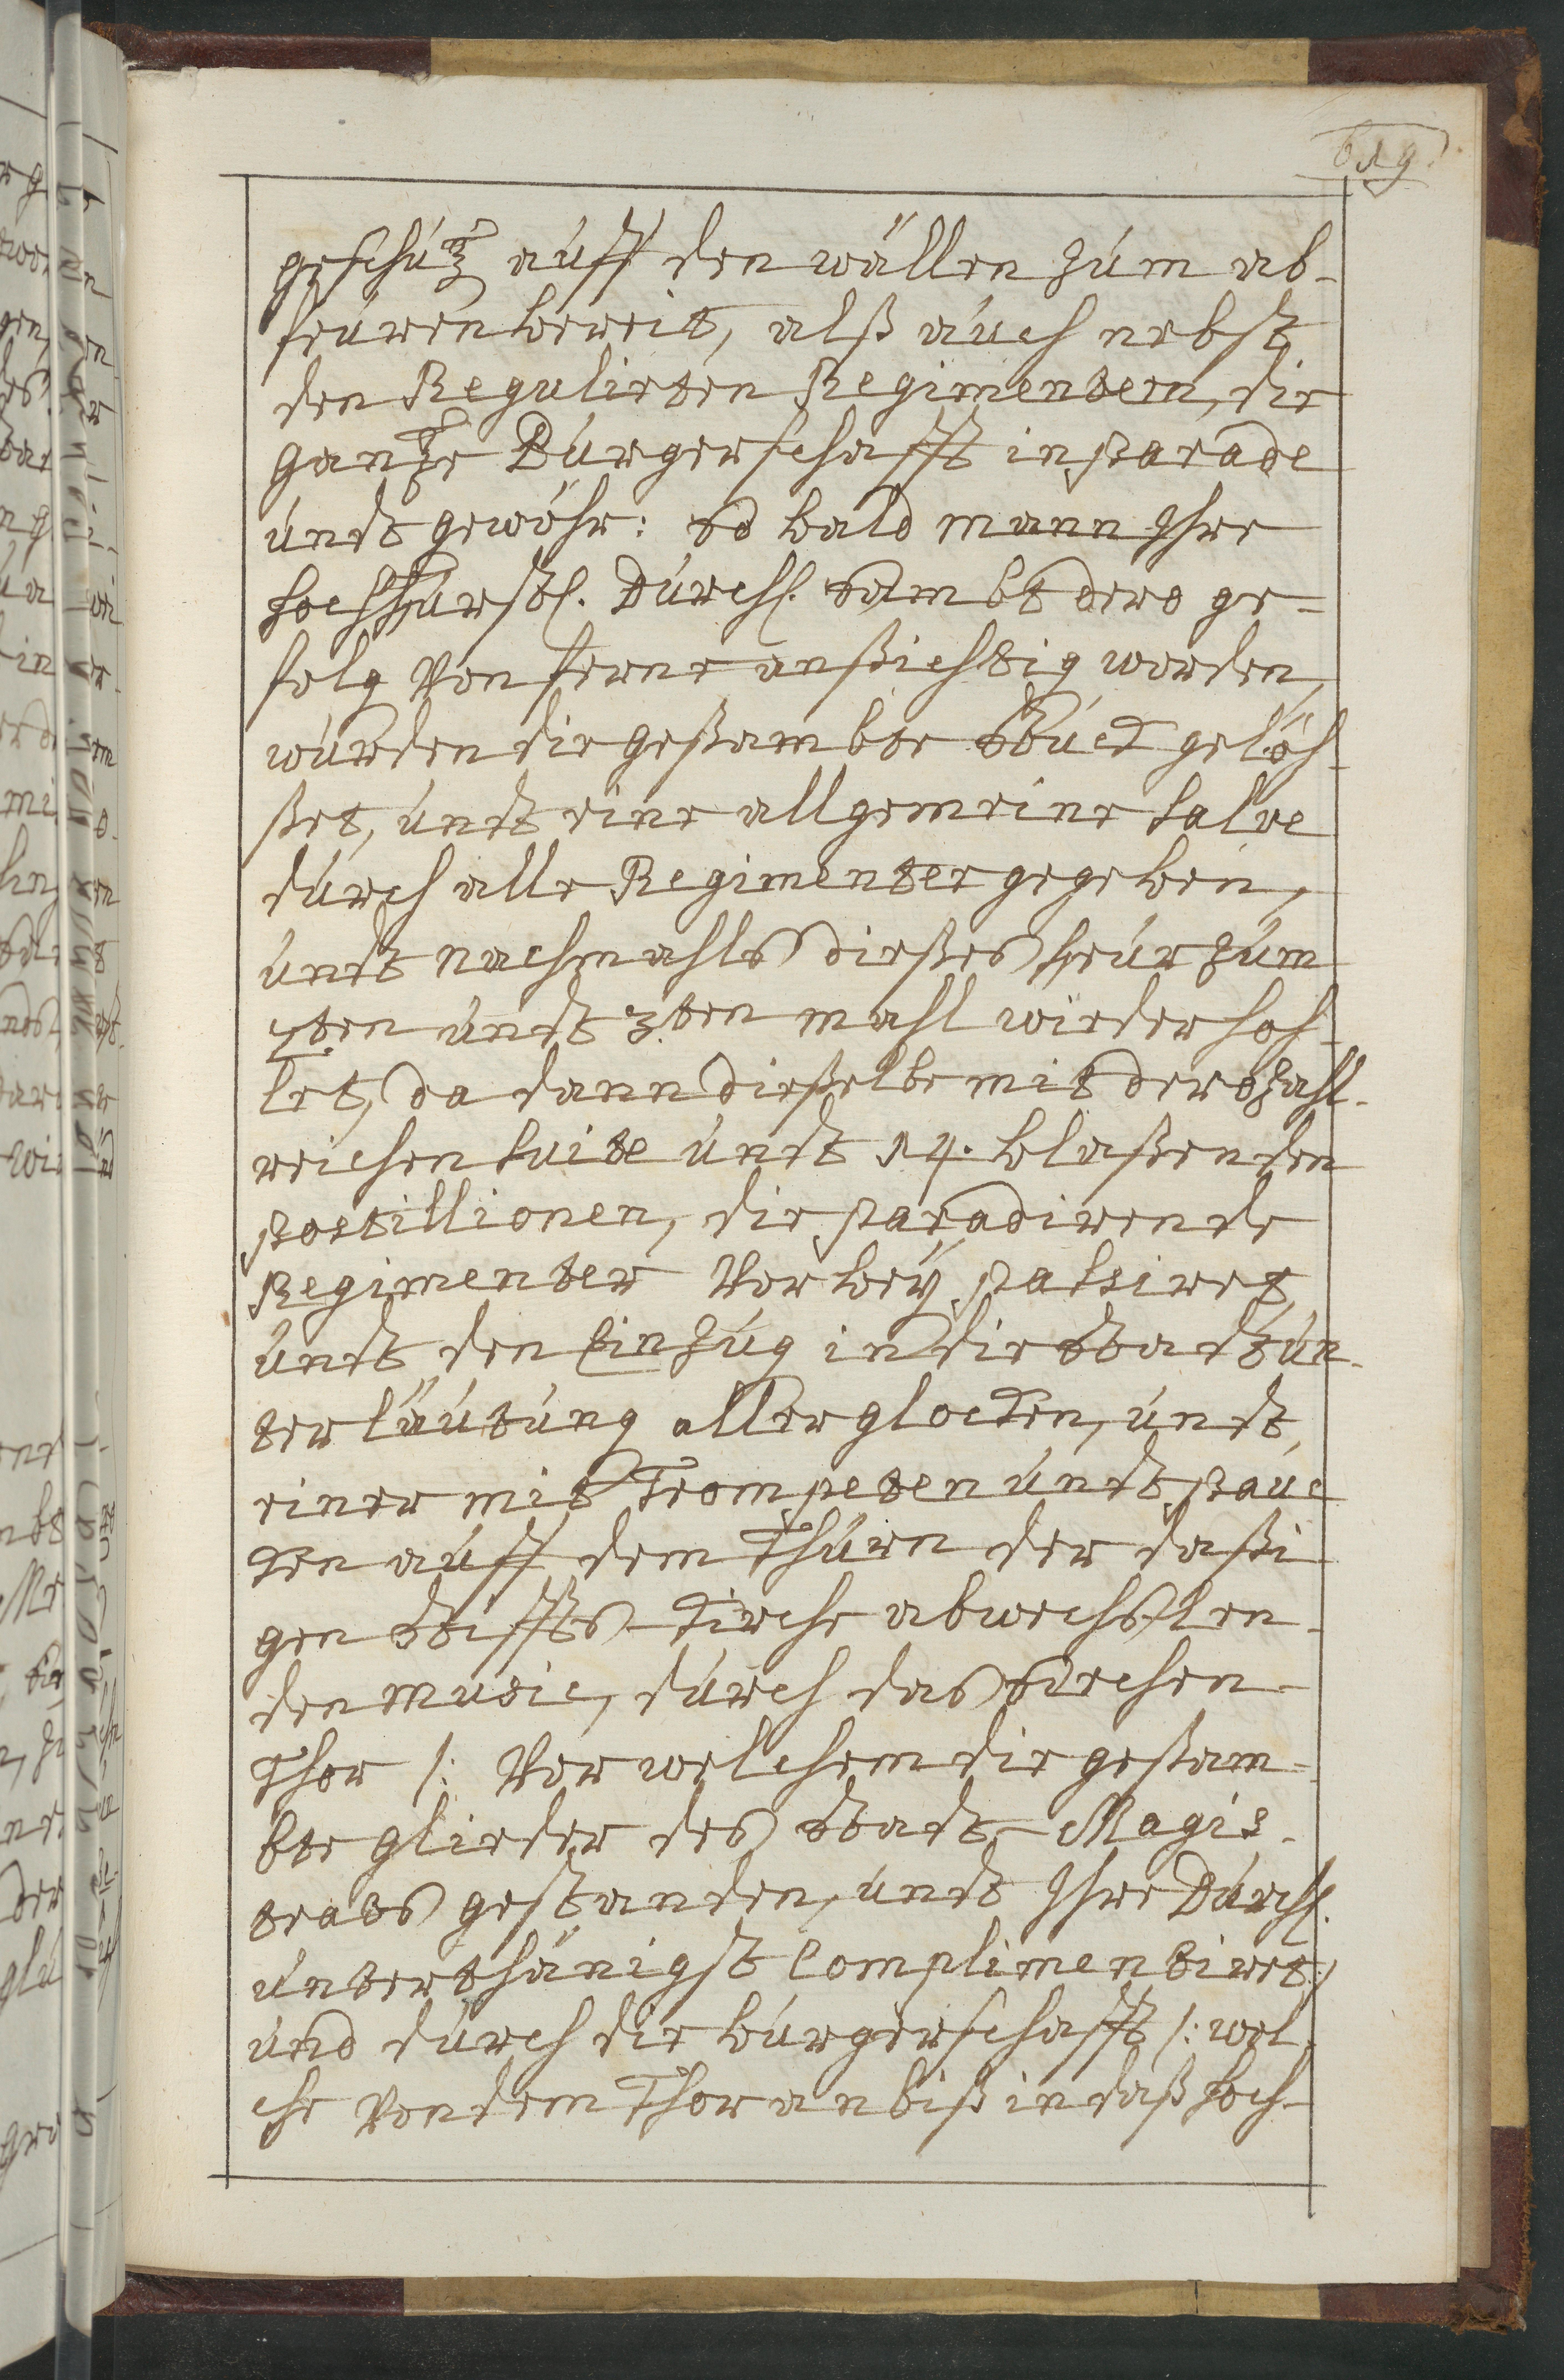 619.
geschütz auff den wällen zum ab-
feüren bereit, alß auch nebst
den Regulirten Regimentern, die
gantze Burgerschafft in parade
undt gewöhr: so bald mann Ihre
hochfürstl. Durchl. sambt dero ge-
folg von ferne ansichtig worden,
wurden die gesambte stuck gelöh-
ßet, undt eine allgemeine salve
durch alle Regimenter gegeben,
undt nachmahls dießes feur zum
2ten undt 3ten mahl wiederhoh-
let, da dann dießelbe mit dero zahl-
reichen suite undt 14. blaßenden
postillionen, die paradirende
Regimenter vorbey passiret,
undt den Einzug in die stadt un-
ter läutung aller glocken, undt
einer mit Trompeten undt pauc
ken auff dem Thurn der daßi
gen stiffts-kirche abwechslen-
den music, durch das
Thor /: vor welchem die gesam-
bte glieder des stadt-Magis-
trats gestanden, undt Ihre Durchl.
unterthänigst complimentiret :/
und durch die burgerschafft /: wel-
che von dem Thor an biß in daß hoch-